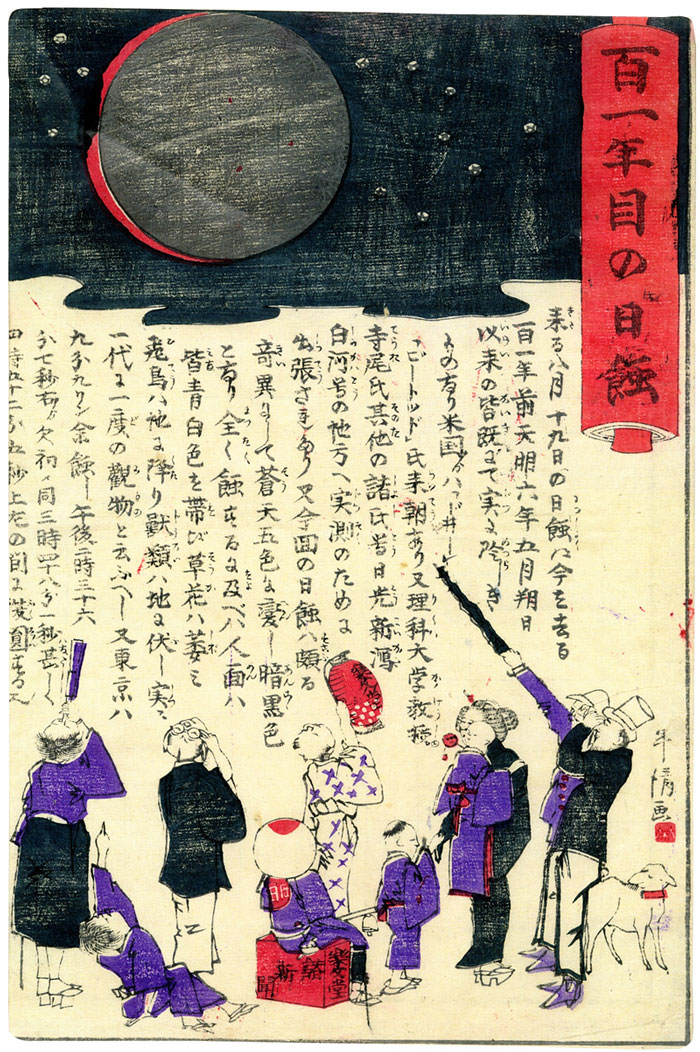 百一年目の日蝕
来る八月十九日の日蝕は今を去る
百一年前天明六年五月朔日
以来の皆既にて実に珍しき
もの有り米国
「ビートッド」氏来朝あり又理科大学教授
寺尾氏其他の諸氏皆日光新潟
白河等の地方へ実測のために
出張さるゝあり又今回の日蝕ハ頗る
奇異にして蒼天五色に変し暗黒色
と有り全く蝕するに及べバ人面ハ
皆青白色を帯び草花ハ萎ミ
飛鳥ハ地に降り獣類ハ地に伏し実に
一代に一度の観物と云ふべし又東京ハ
九分九リン余蝕し午後二時三十六
分七秒右ゟ欠初め同三時四十八分一秒甚しく
四時五十二分五秒上左の間に復円する
画
楽堂
新聞